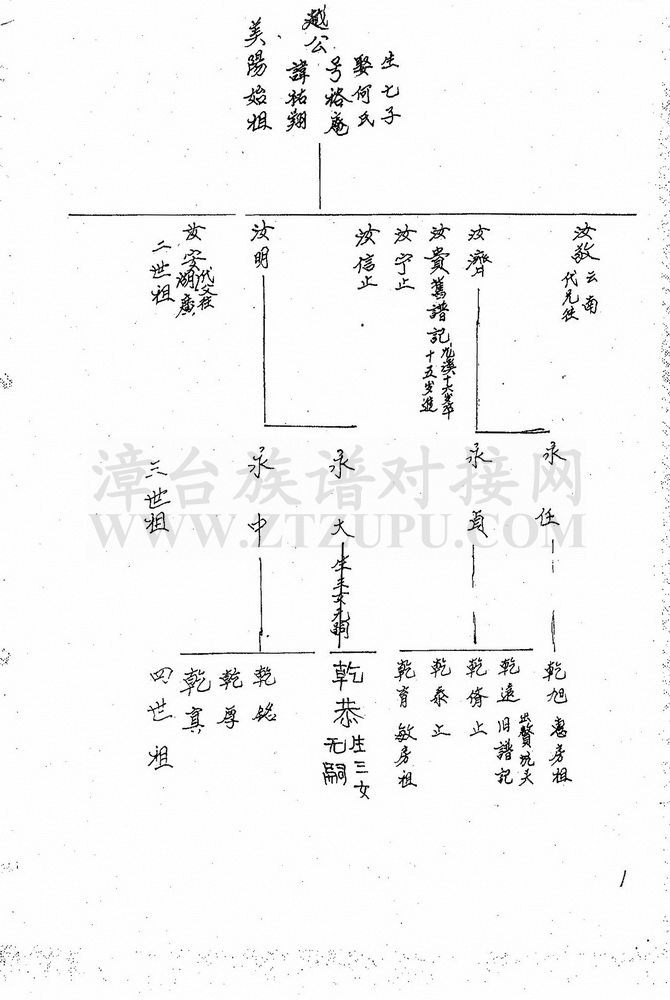 越公
生七子
娶何氏
号裕庵
諱祐翔
美陽始祖
汝敬
云南
代兄徙
汝濟
汝貴
舊譜記
十五岁進
汝宁止
汝信止
汝明
汝安
湖廣
二世祖
永任
永貞
永大
生三女无嗣
永中
三世祖
乾旭
惠房祖
乾遠
旧譜記
出贅坑夫
乾脩止
乾泰止
乾育
敏房祖
乾恭
生三女
无嗣
乾銘
乾厚
乾真
四世祖
漳台族谱对接网
WWW.ZTZUPU.COM
1